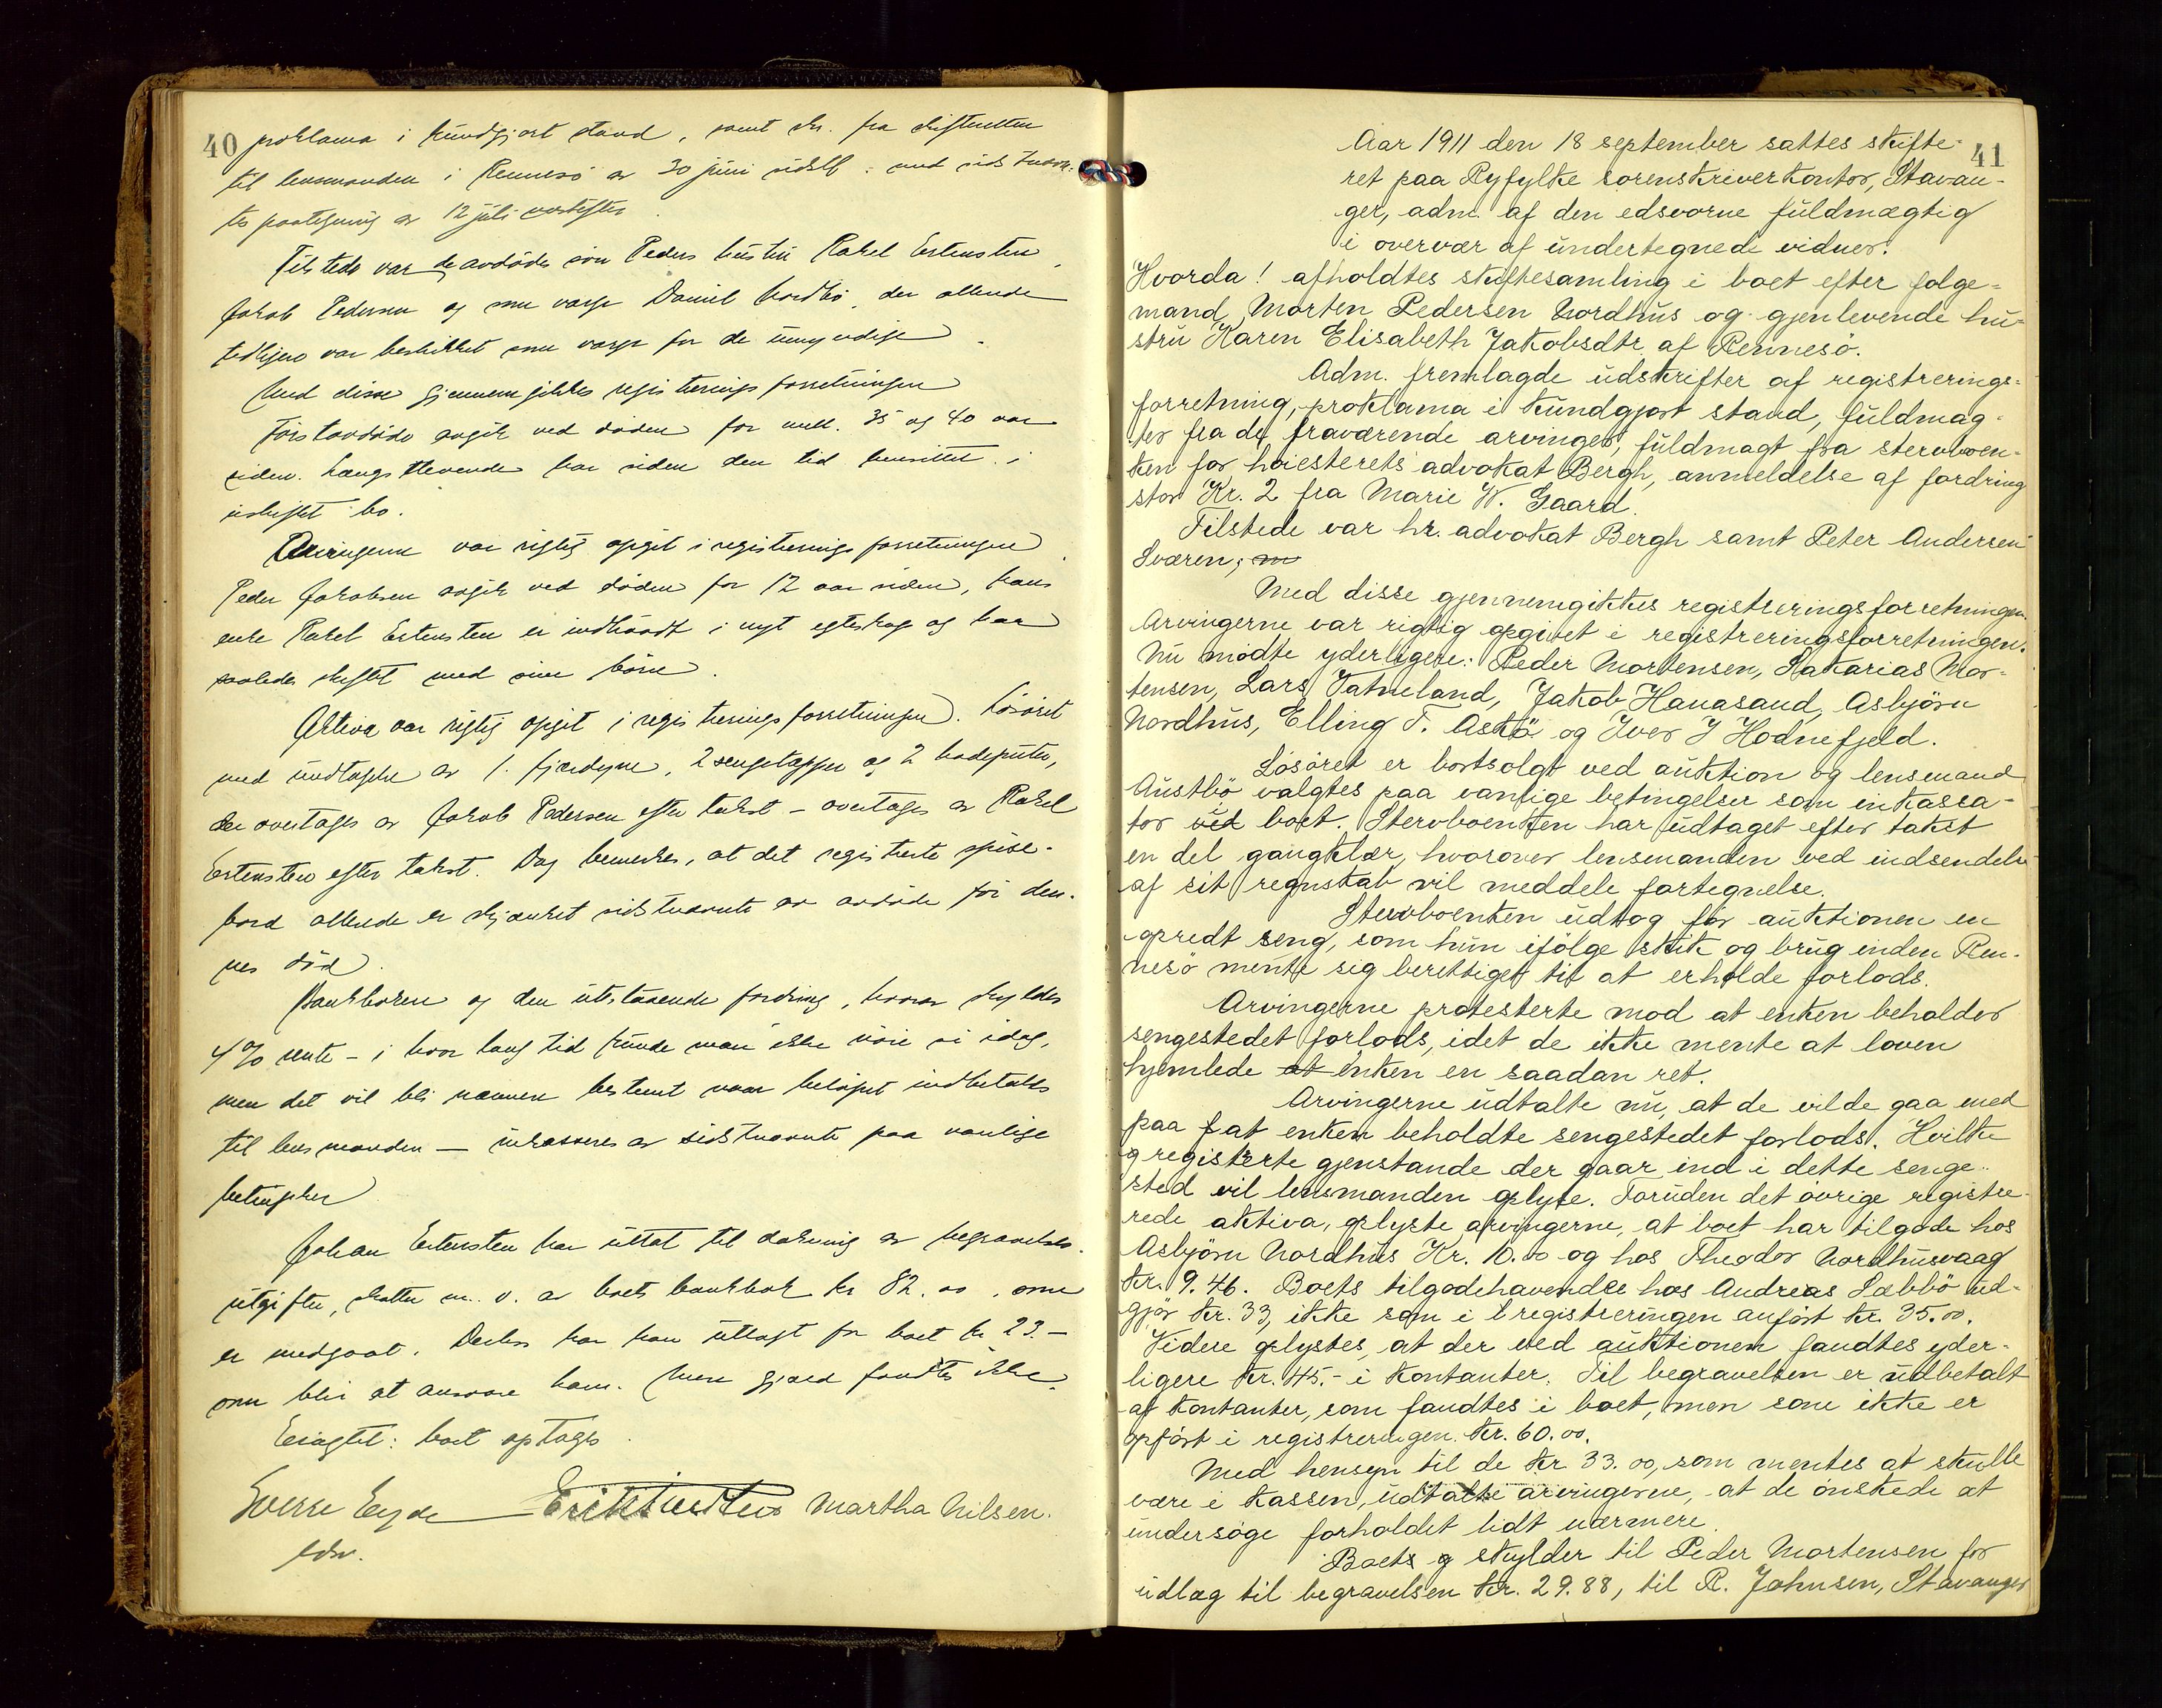 40
proklama i kundgjort stand, samt skr. fra skifteretten
til lensmanden i Rennesö av 30 juni sidstl. med sidstnævn-
tes paategning av 12 juli
Tilstede var de avdödes sön Peders hustru Rakel Ertensten
Jakob Pedersen og som verge Daniel Nordbö, der allerede
tidligere var beskikket som verge for de umyndige.
Med disse gjennemgikkes registreringsforretningen
Förstavdöde avgik ved döden for mell. 35 og 40 aar
siden. Længstlevende har siden den tid hensittet i
uskiftet bo.
Arvingerne var rigtig opgit i registreringsforretningen.
Peder Jakobsen avgik ved döden for 12 aar siden, hans
enke Rakel Ertensten er indtraadt i nyt egteskap og har
saaledes skiftet med sine börn.
Aktiva var rigtig opgit i registreringsforretningen. Lösöret
med undtagelse av 1 fjærdyne, 2 sengetæpper og 2 hodeputer,
der overtages av Jakob Pedersen efter takst - overtages av Rakel
Ertensten efter takst. Dog bemerkes, at det registrerte spise-
bord allerede er skjænket sidstnævnte av avdöde för den-
nes död.
Bankboken og den utestaaende fordring, hvorav skyldes
4% rente - i hvor lang tid kunde man ikke si idag,
men det vil bli nærmere bestemt naar belöpet indbetales
til lensmanden - inkasseres av sidstnævnte paa vanlige
betingelser
Johan Ertensten har uttat til dækning av begravelses-
utgifter, skatter m.v. av boets bankbok kr 82.00, som
er medgaat. Desuten har han utlagt for boet kr 23.-
som blir at ansvare ham. Mere gjæld fandtes ikke.
Eragtet: boet optages.
Sverre Eyde Martha Nilsen.
edsv.
41
Aar 1911 den 18 september sattes skifte-
ret paa Ryfylke sorenskriverkontor, Stavan-
ger, adm. af den edsvorne fuldmægtig
i overvær af undertegnede vidner.
Hvorda! afholdtes skiftesamling i boet efter følge-
mand Morten Pedersen Nordhus og gjenlevende hu-
stru Karen Elisabeth Jakobsdtr. af Rennesö.
Adm. fremlagde udskrifter af registrerings-
forretning, proklama i kundgjort stand, fuldmag-
ter fra de fraværende arvinger, fuldmagt fra stervboen-
ken for høiesterets advokat Bergh, anmeldelse af fordring
stor Kr. 2 fra Marie W. Gaard.
Tilstede var hr. advokat Bergh samt Peter Andersen
Sværen, m
Med disse gjennemgikkes registreringsforretningen.
Arvingerne var rigtig opgivet i registreringsforretningen.
Nu mødte yderligere: Peder Mortensen, Sakarias Mor-
tensen, Lars Vatneland, Jakob Hanasand, Asbjörn
Nordhus, Elling T. Askö og Iver J Hodnefjeld.
Lösöret er bortsolgt ved auktion og lensmand
Austbö valgtes paa vanlige betingelser som inkassa-
tor ved boet. Stervboenken har udtaget efter takst
en del gangklær, hvorover lensmanden ved indsendelse
af sit regnskab vil meddele fortegnelse.
Stervboenken udtog för auktionen en
opredt seng, som hun ifölge skik og brug inden Ren-
nesö mente sig berettiget til at erholde forlods.
Arvingerne protesterte mod at enken beholder
sengestedet forlods, idet de ikke mente at loven
hjemlede at enken en saadan ret.
Arvingerne udtalte nu, at de vilde gaa med
paa at enken beholdte sengestedet forlods. Hvilke
registrerte gjenstande der gaar ind i dette senge-
sted vil lensmanden oplyse. Foruden det övrige registre-
rede aktiva, oplyste arvingerne, at boet har tilgode hos
Asbjörn Nordhus Kr. 10.00 og hos Theodor Nordhusvaag
kr. 9.46. Boets tilgodehavende hos Andreas Sæbbö ud-
gjör kr. 33, ikke som i registreringen anfört kr. 35.00.
Videre oplystes, at der ved auktionen fandtes yder-
ligere kr. 45.- i kontanter. Til begravelsen er udbetalt
af kontanter, som fandtes i boet, men som ikke er
opfört i registreringen kr. 60.00.
Med hensyn til de kr 33.00, som mentes at skulle
være i kassen, udtalte arvingerne, at de önskede at
undersöge forholdet lidt nærmere.
Boets g skylder til Peder Mortensen for
udlæg til begravelsen kr. 29.88, til R. Johnsen, Stavanger